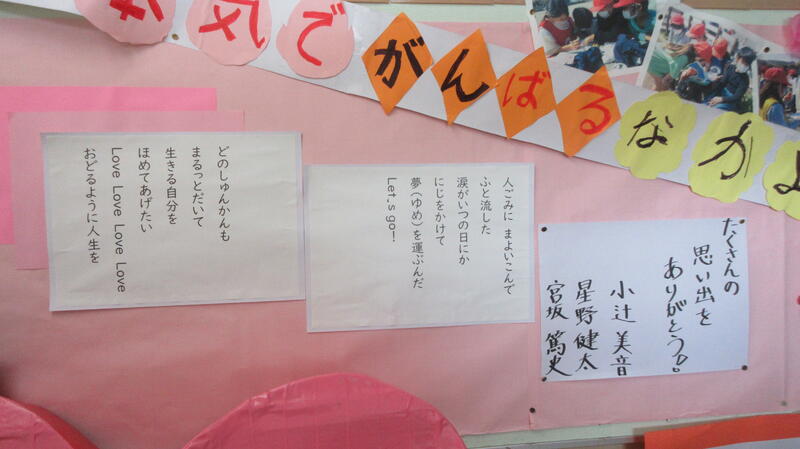 気でがんばるなかよ
たくさんの
思い出を
ありがとう!!
小辻 美音
星野 健太
宮坂 篤史
人ごみに まよいこんで
ふと流した
涙がいつの日にか
にじをかけて
夢(ゆめ)を運ぶんだ
Let,s go!
どのしゅんかんも
まるっとだいて
生きる自分を
ほめてあげたい
Love Love Love Love
おどるように人生を